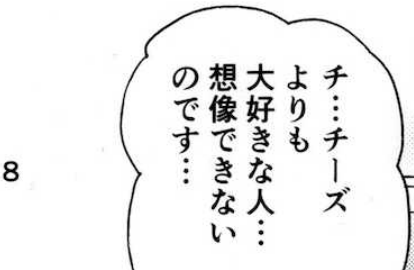 チ…チーズ
よりも
大好きな人…
想像できない
のです…
8